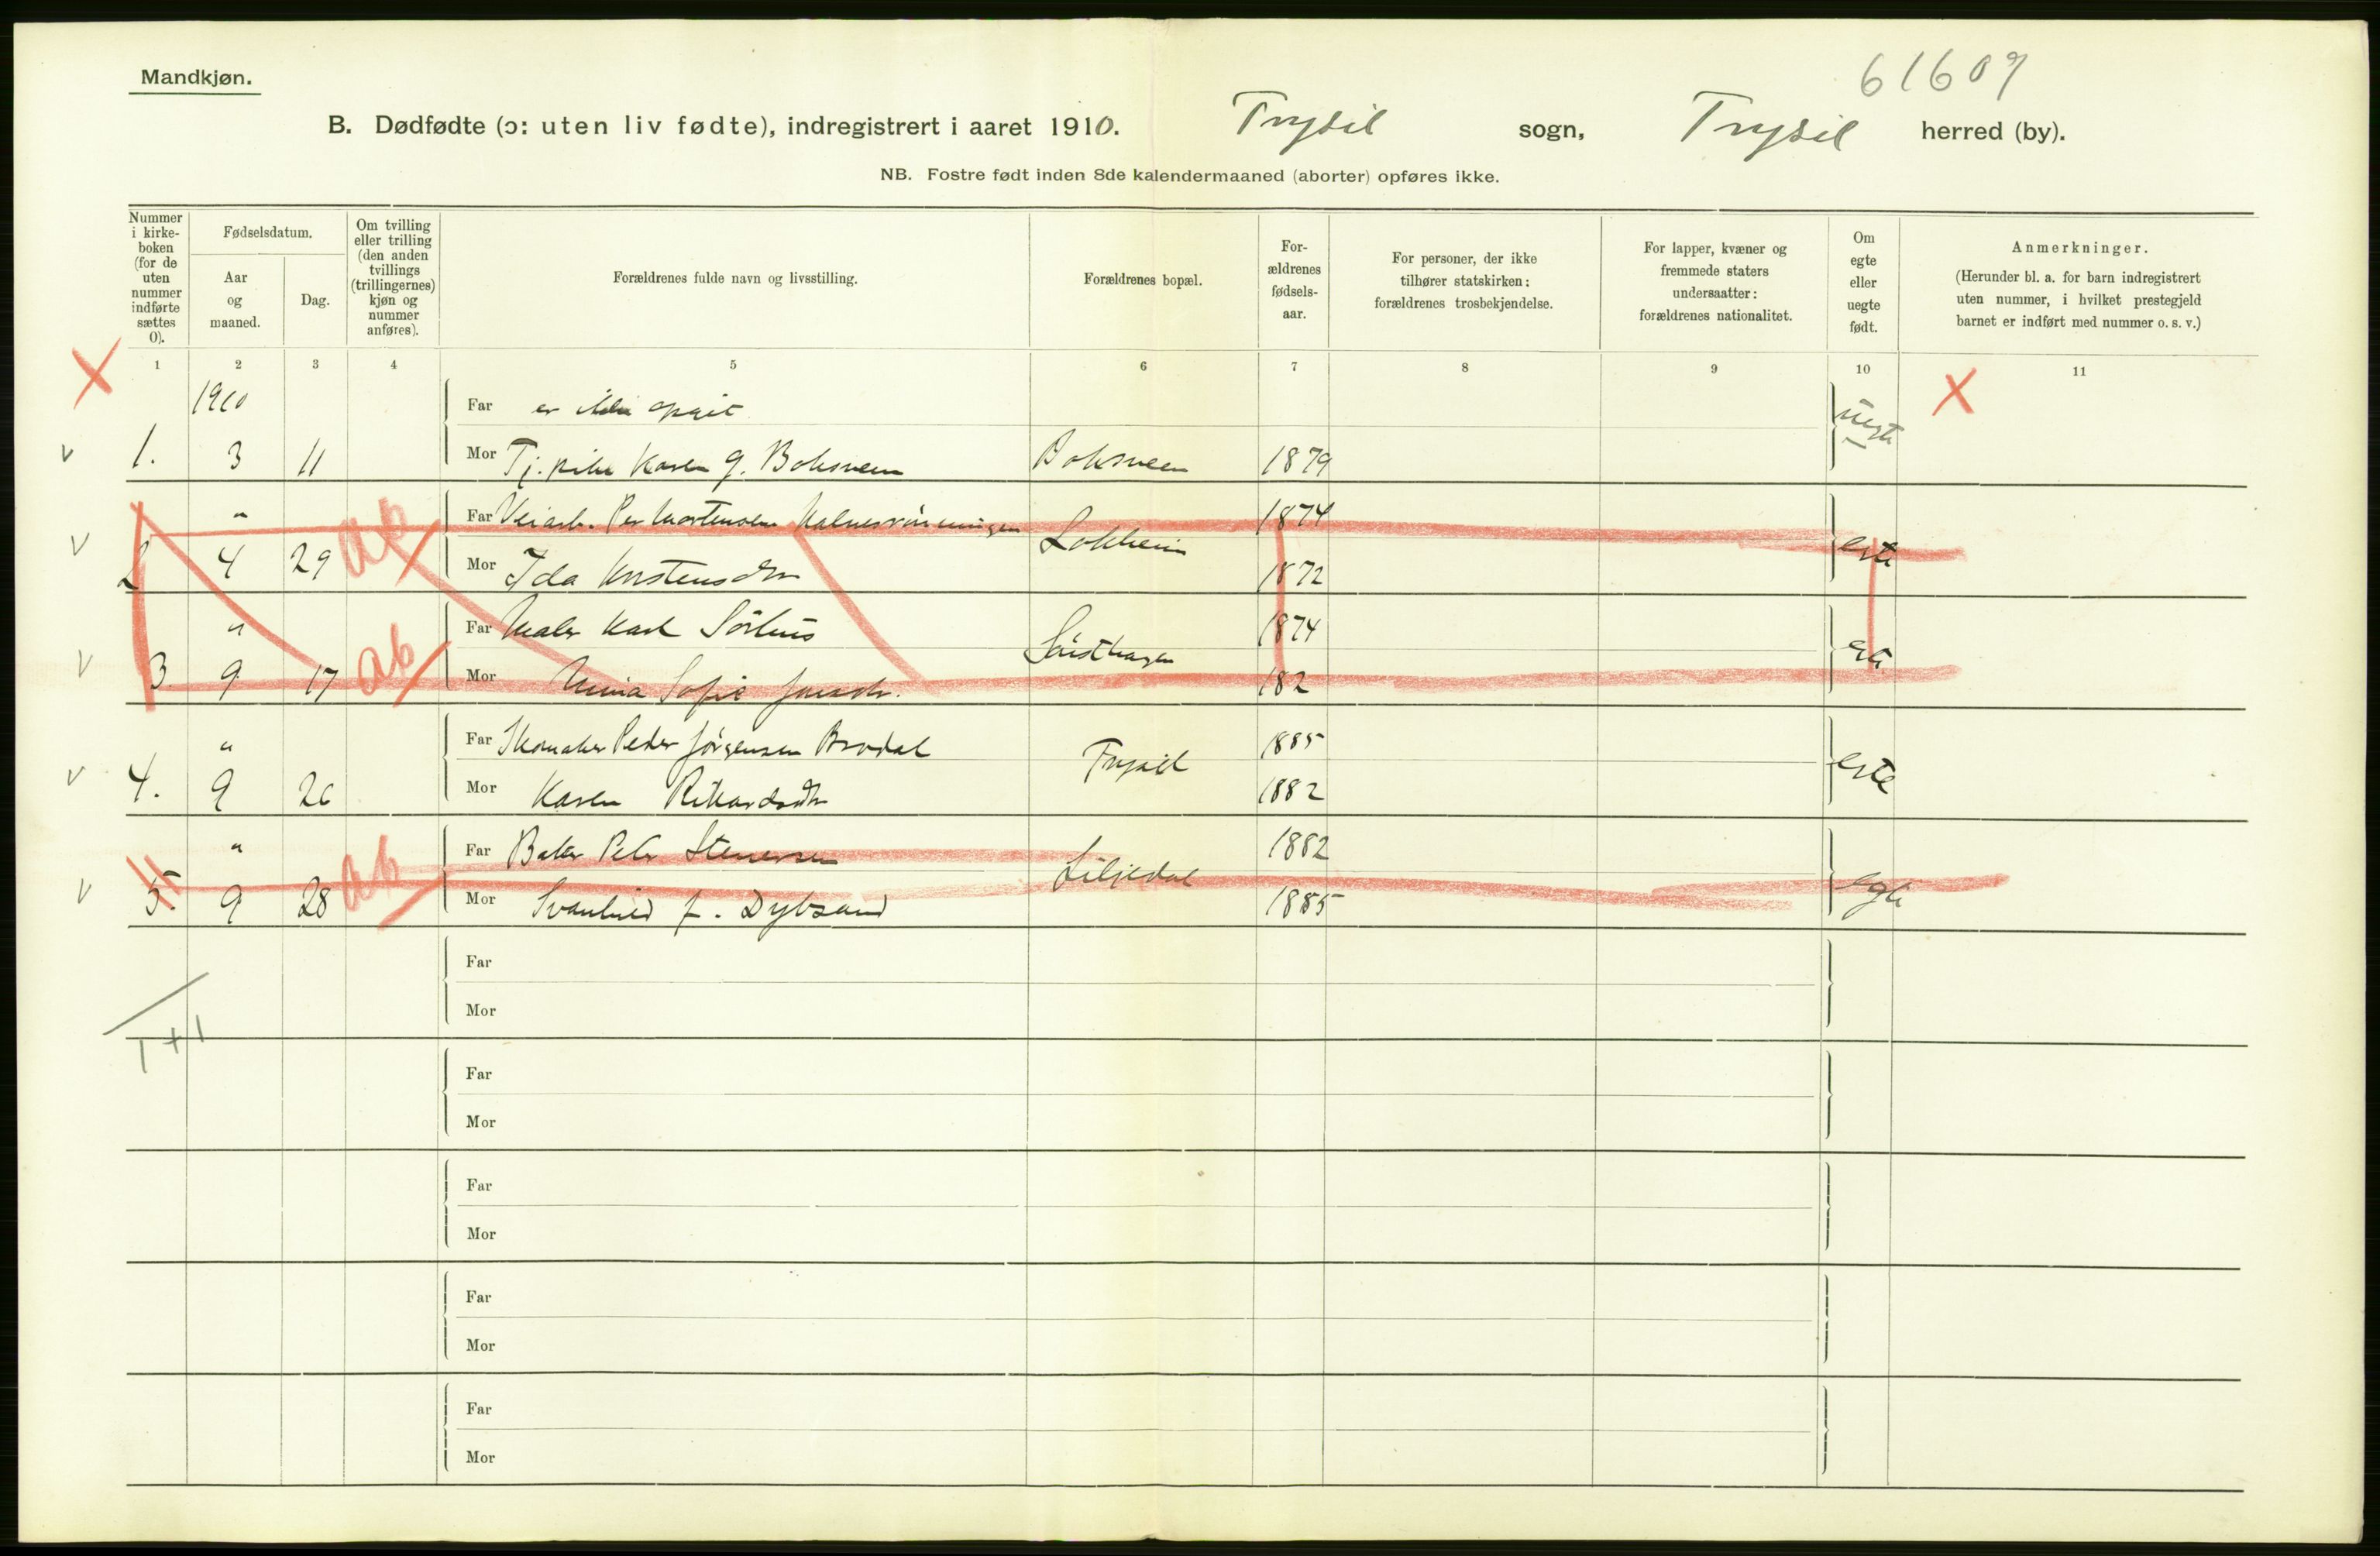 61607
Mandkjøn.
B. Dødfødte (ɔ: uten liv fødte), indregistrert i aaret 1910. Trysil sogn, Trysil herred (by).
NB. Fostre født inden 8de kalendermaaned (aborter) opføres ikke.
Nummer i kirke-boken (for de uten nummer indførte sættes 0).
Fødselsdatum.
Aar og maaned.
Dag.
Om tvilling eller trilling (den anden tvillings (trillingernes) kjøn og nummer anføres).
Forældrenes fulde navn og livsstilling.
Forældrenes bopæl.
For-ældrenes fødsels-aar.
For personer, der ikke tilhører statskirken: forældrenes trosbekjendelse.
For lapper, kvæner og fremmede staters undersaatter: forældrenes nationalitet.
Om egte eller uegte født.
Anmerkninger.
(Herunder bl. a. for barn indregistrert uten nummer, i hvilket prestegjeld barnet er indført med nummer o. s. v.)
1 2 3 4 5 6 7 8 9 10 11
X X
1910 Far er ikke opgit uegte
v 1. 3 11 Mor Tj. pike Karen G. Boksveen Boksveen 1879
" Far Veiarb. Per Mortensen 1874
v 2 4 29 ab Mor Ida Lokheim 1872 egte
" Far Maler Karl Sörhus 1874
v 3. 9 17 ab Mor Sofie 182 egte
" Far Skomaker Peder Jörgensen Brodal Trysil 1885 egte
v 4. 9 26 Mor Karen Rikardsdtr 1882
" Far Baker Peder Stenersen Liljedal 1882
v 5. 9 28 ab Mor Svanhild f. Dybsand 1885 egte
Far
Mor
1+1
Far
Mor
Far
Mor
Far
Mor
Far
Mor